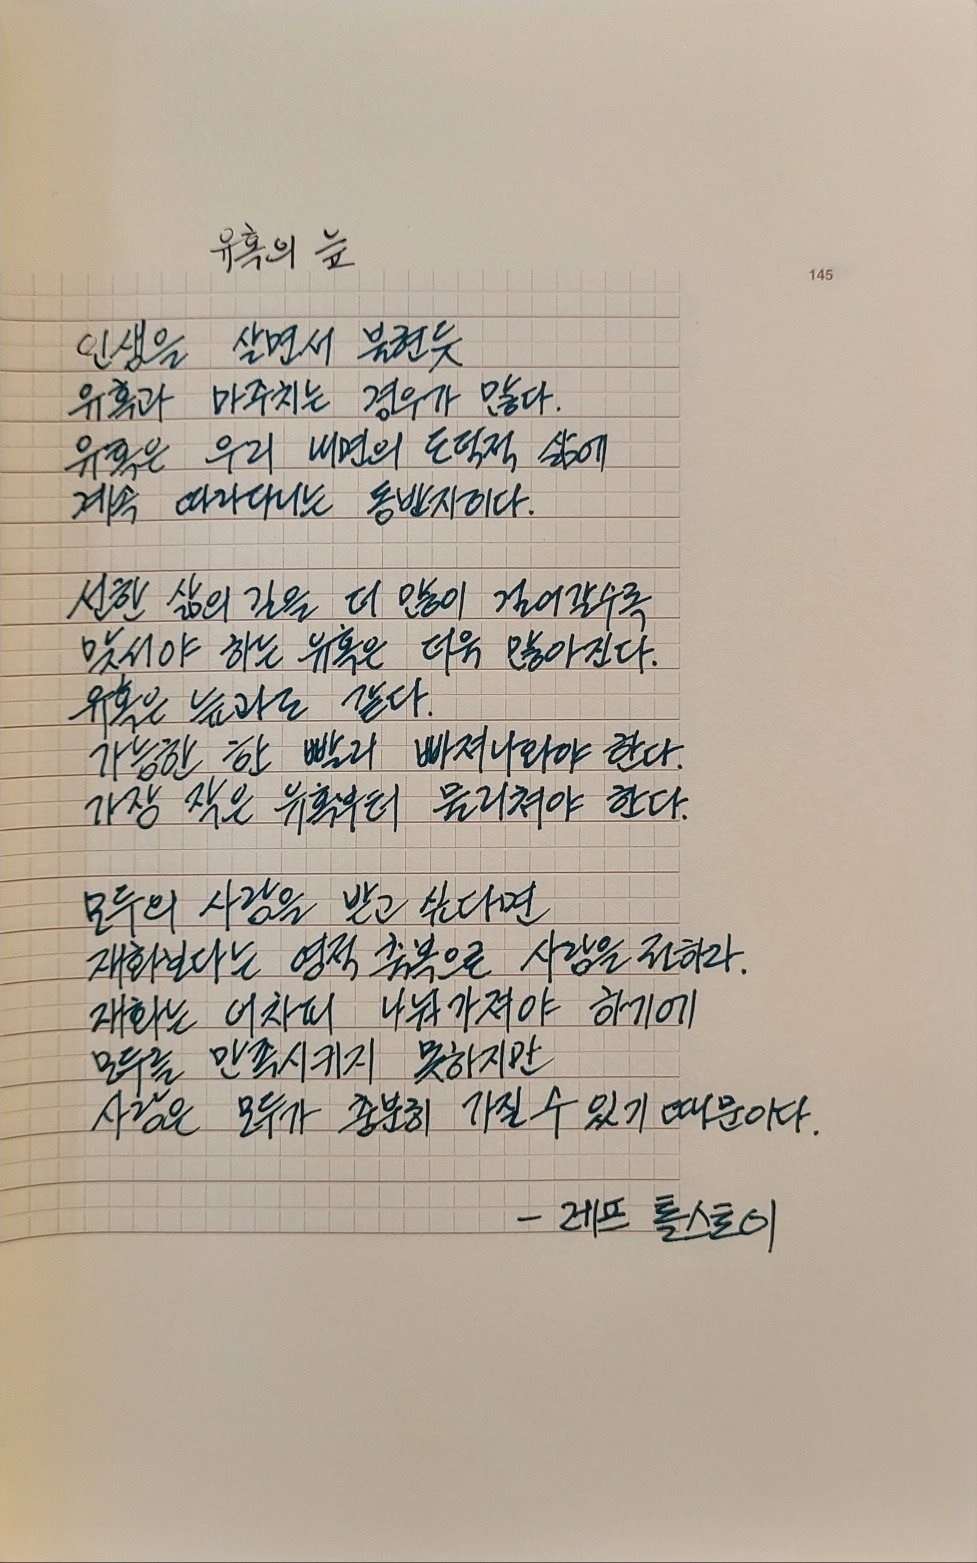 유혹의 늪
145
인생을 살면서 북현듯
유혹과 마주치는 경우가 많다.
유혹은 우리 내면의 도덕적 삶에
계속 따라다니는 동반자이다.
선한 삶의 길을 더 많이 걸어갈수록
맞서야 하는 유혹은 더욱 많아진다.
유혹은 늪과도 같다.
가능한 한 빨리 빠져나와야 한다.
가장 작은 유혹부터 물리쳐야 한다.
모두의 사랑을 받고 싶다면
재화보다는 영적 축복으로 사랑을 전하라.
재화는 어차피 나눠가져야 하기에
모두를 만족시키지 못하지만
사랑은 모두가 충분히 가질 수 있기 때문이다.
- 레프 톨스토이